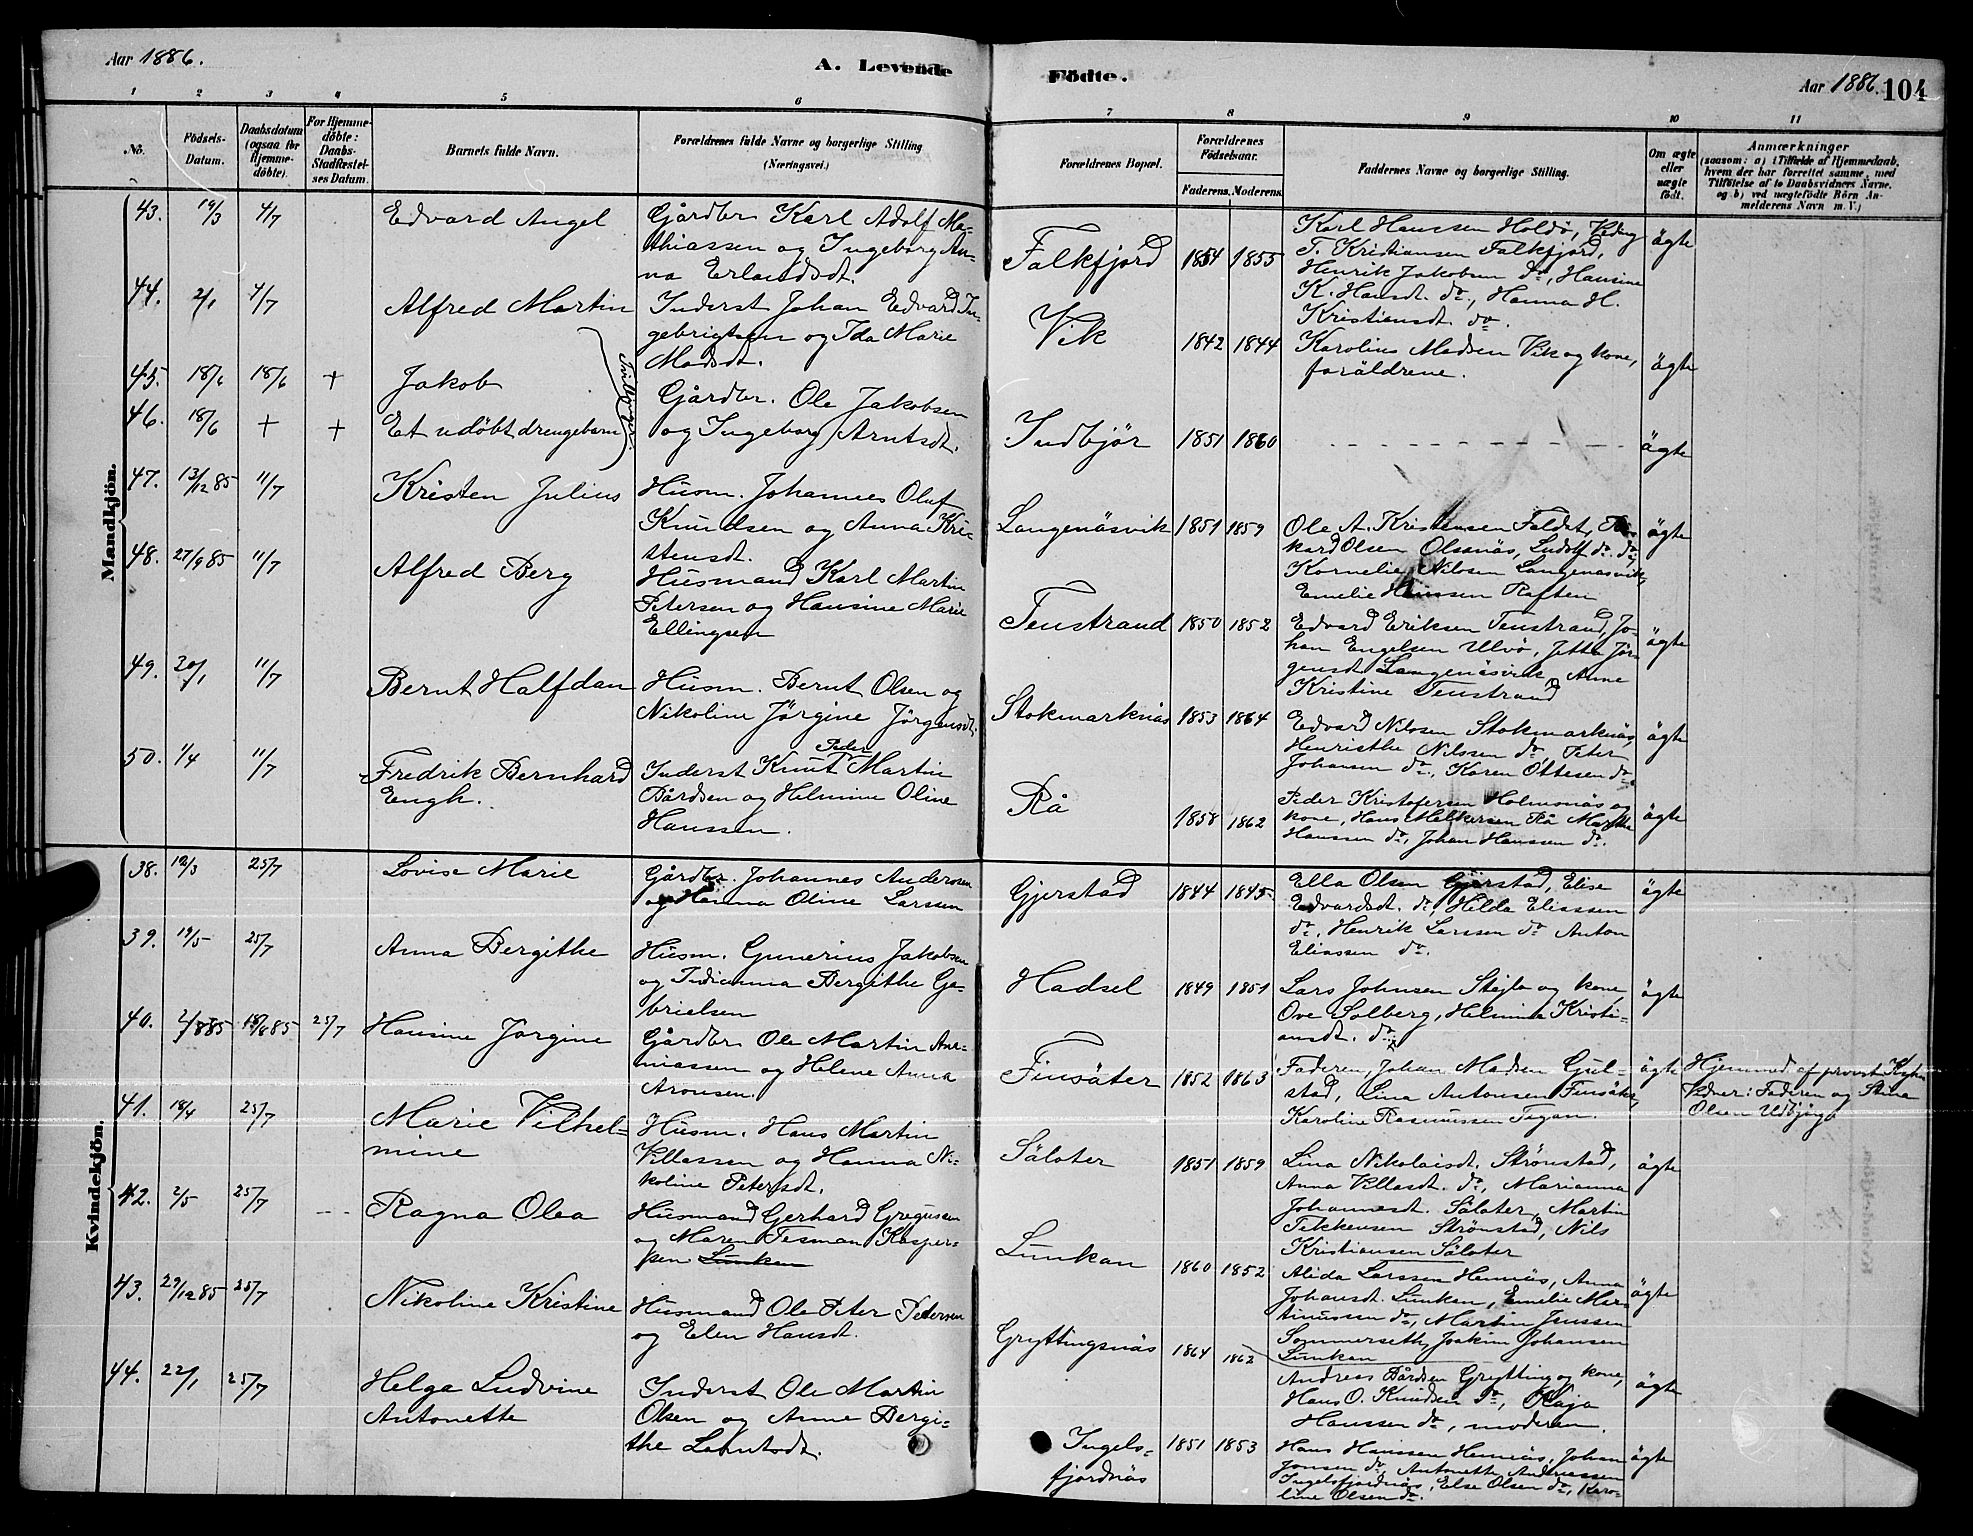 Aar 1886.
A. Levende Födte.
Aar 1886. 104
1 2 3 4 5 6 7 8 9 10 11
No.
Födsels-
Datum.
Daabsdatum
(ogsaa for
Hjemme-
döbte).
For Hjemme-
döbte:
Daabs-
Stadfæstel-
ses Datum.
Barnets fulde Navn.
Forældrenes fulde Navne og borgerlige Stilling
(Næringsvei.)
Forældrenes Bopæl.
Forældrenes
Födselsaar.
Faderens. Moderens.
Faddernes Navne og borgerlige Stilling.
Om ægte
eller
uægte
födt.
Anmærkninger
(saasom: a) i Tilfælde af Hjemmedaab,
hvem der har forrettet samme, med
Tilföielse af to Daabsvidners Navne.
og b) ved uægtefödte Börn An-
melderens Navn m. V.)
Mandkjön.
43. 19/3 4/7 Edvard Angel
Gårdbr Karl Adolf Ma-
thiassen og Ingeborg An-
na Erlandsdt.
Falkfjord 1854 1855
Karl Hanssen Holdö,
T. Kristiansen Falkfjord,
Henrik Jakobsen do, Hansine
K. Hansdt. do, Hanna H.
Kristiansdt. do.
ägte
44. 2/1 4/7 Alfred Martin
Inderst Johan Edvard In-
gebrigtsen og Ida Marie
Madsdt.
Vik 1842 1844
Karolius Madsen Vik og kone,
foräldrene.
ägte
45. 18/6 18/6 + Jakob
46. 18/6 + + Et udöbt drengebarn
Tvillinger
Gårdbr. Ole Jakobsen
og Ingeborg Arntsdt.
Indbjör 1851 1860
ägte
47. 13/12 85 11/7 Kristen Julius
Husm. Johannes Oluf
Knudsen og Anna Kri-
stensdt.
Langenäsvik 1851 1859
Ole A. Kristensen Faldet,
kard Olsen Olsnäs, Ludolf do. do,
Kornelie Nilsen Langenäsvik,
Emelie Hanssen Raften
ägte
48. 27/9 85 11/7 Alfred Berg
Husmand Karl Martin
Petersen og Hansine Marie
Ellingsen
Tenstrand 1850 1852
Edvard Eriksen Tenstrand, Jo-
han Engelsen Ulvö, Jetta Jör-
gensdt Langenäsvik, Anne
Kristine Tenstrand
ägte
49. 30/1 11/7 Bernt Halfdan
Husm. Bernt Olsen og
Nikoline Jörgine Jörgensdt.
Stokmarknäs 1853 1864
Edvard Nilsen Stokmarknäs,
Henrikthe Nilssen do, Peter
Johansen do, Karen Ottesen do
ägte
50. 1/4 11/7 Fredrik Bernhard
Engh.
Peder
Inderst Knut Martin
Bårdsen og Helmine Oline
Hanssen.
Rå 1858 1862
Peder Kristofersen Holmsnäs og
kone, Hans Melkersen Rå Marthe
Hanssen do, Johan Hanssen do.
ägte
Kvindekjön.
38. 12/3 25/7 Lovise Marie
Gårdbr. Johannes Anderssen
og Hanna Oline Larssen
Gjerstad 1844 1845
Ella Olsen Gjerstad, Elise
Edvardsdt. do, Helda Eliassen
do, Henrik Larssen do Anton
Eliassen do.
ägte
39. 19/5 25/7 Anna Bergithe
Husm. Gunerius Jakobsen
og Pedianna Bergithe Ga-
brielsen
Hadsel 1849 1851
Lars Johnsen Stejlo og kone,
Ove Solberg, Helmina Kristi-
ansdt. do
ägte
40. 2/8 85 18/8 85 25/7 Hansine Jorgine
Gårdbr Ole Martin Are-
niassen og Helene Anna
Aronsen.
Finsäter 1852 1863
Faderen, Johan Madsen Gul-
stad, Lina Antonsen Finsäter,
Karoline Rasmussen Tegan.
ägte
Hjemmed. af provst
Vidner: Faderen og Stina
Olsen Udbjörg
41. 18/4 25/7 Marie Vilhel-
mine
Husm. Hans Martin
Villassen og Hanna Ni-
koline Petersdt.
Säloter 1851 1859
Lina Nikolaisdt. Strönstad,
Anna Villasdt. do, Marianna
Johannesdt. Säloter, Martin
Tekkensen Strönstad, Nils
Kristiansen Säloter
ägte
42. 2/5 25/7 Ragna Olea
Husmand Gerhard Gregusen
og Maren Tesman Kasper-
sen Lunkan
Lunkan 1860 1852
Alida Larssen Hennäs, Anna
Johansdt. Lunkan, Emelie Mar-
tinussen do, Martin Jenssen
Sommerseth, Joakim Johansen
Lunkan
ägte
43. 29/12 85 25/7 Nikoline Kristine
Husmand Ole Peter Pedersen
og Elen Hansdt.
Gryttingsnäs 1864 1862
Andreas Bårdsen Grytting og kone,
Hans O. Knudsen do, Kaja
Hanssen do, moderen.
ägte
44. 22/1 25/7 Helga Ludvine
Antonette
Inderst Ole Martin
Olsen og Anne Bergi-
the Lorntsdt.
Ingels-
fjordnäs
1851 1853
Hans Hanssen Hennäs, Johan
Jonsen do, Antonette Andreassen
Ingelsfjordnäs, Else Olsen do, Karo-
line Olsen do.
ägte